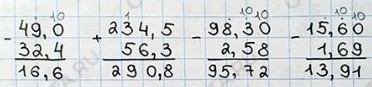 10 1 10 10 10
- 49,0 + 234,5 - 98,30 - 15,60
32,4 56,3 2,58 1,69
16,6 290,8 95,72 13,91